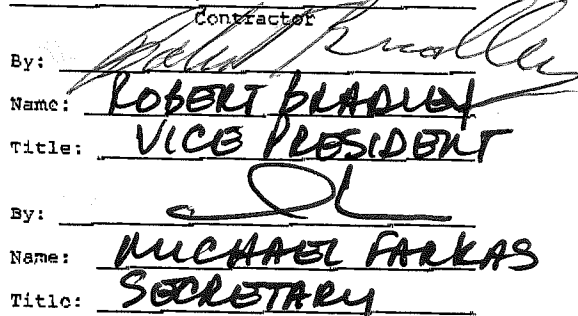 Contractor
By: Robert Bradley
Name: ROBERT BRADLEY
Title: VICE PRESIDENT
By:
Name: MICHAEL FARKAS
Title: SECRETARY